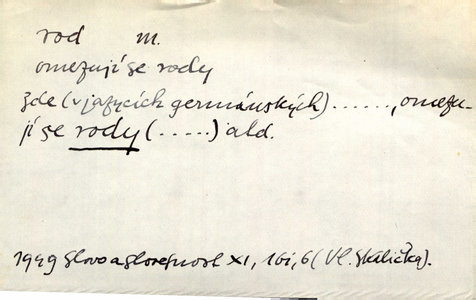 rod m.
omezují se rody
zde (v jazycích germánských) ......, omezu-
jí se rody (.....) atd.
1949 Slovo a slovesnost XI, 1Gi,6 (Vl. Skalička).